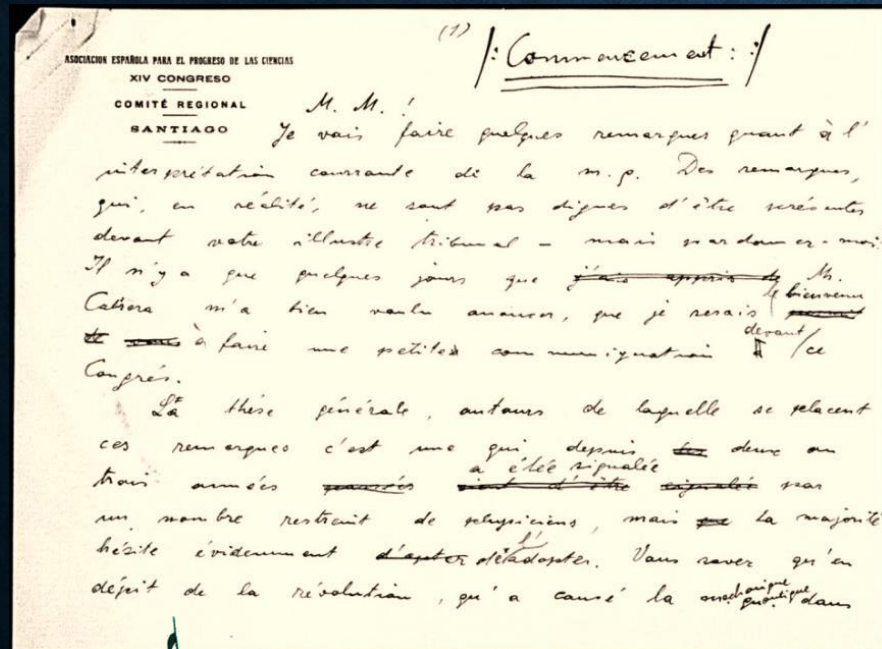 (1)
/: Commencement: :/
ASOCIACION ESPAÑOLA PARA EL PROGRESO DE LAS CIENCIAS
XIV CONGRESO
COMITÉ REGIONAL
SANTIAGO
M. M. !
Je vais faire quelques remarques quant à l'
interprétation courrante de la m.q. Des remarques,
qui, en réalité, ne sont pas dignes d'être présentes
devant votre illustre tribunal – mais pardonner-moi
Il n'y a que quelques jours que j'ais appris de M.
Cabrera m'a bien voulu anoncer, que je serais le bienvenu
à faire une petite communiquation devant /ce
Congrés.
La thèse générale, autours de laquelle se placent
ces remarques c'est une qui depuis des deux ou
trois années a étée signalée par
un nombre restreint de physiciens, mais la majorité
hésite évidemment d'apter de l'adopter. Vous saver qu'en
dépit de la révolution, qu'a causé la mechanique quantique dans